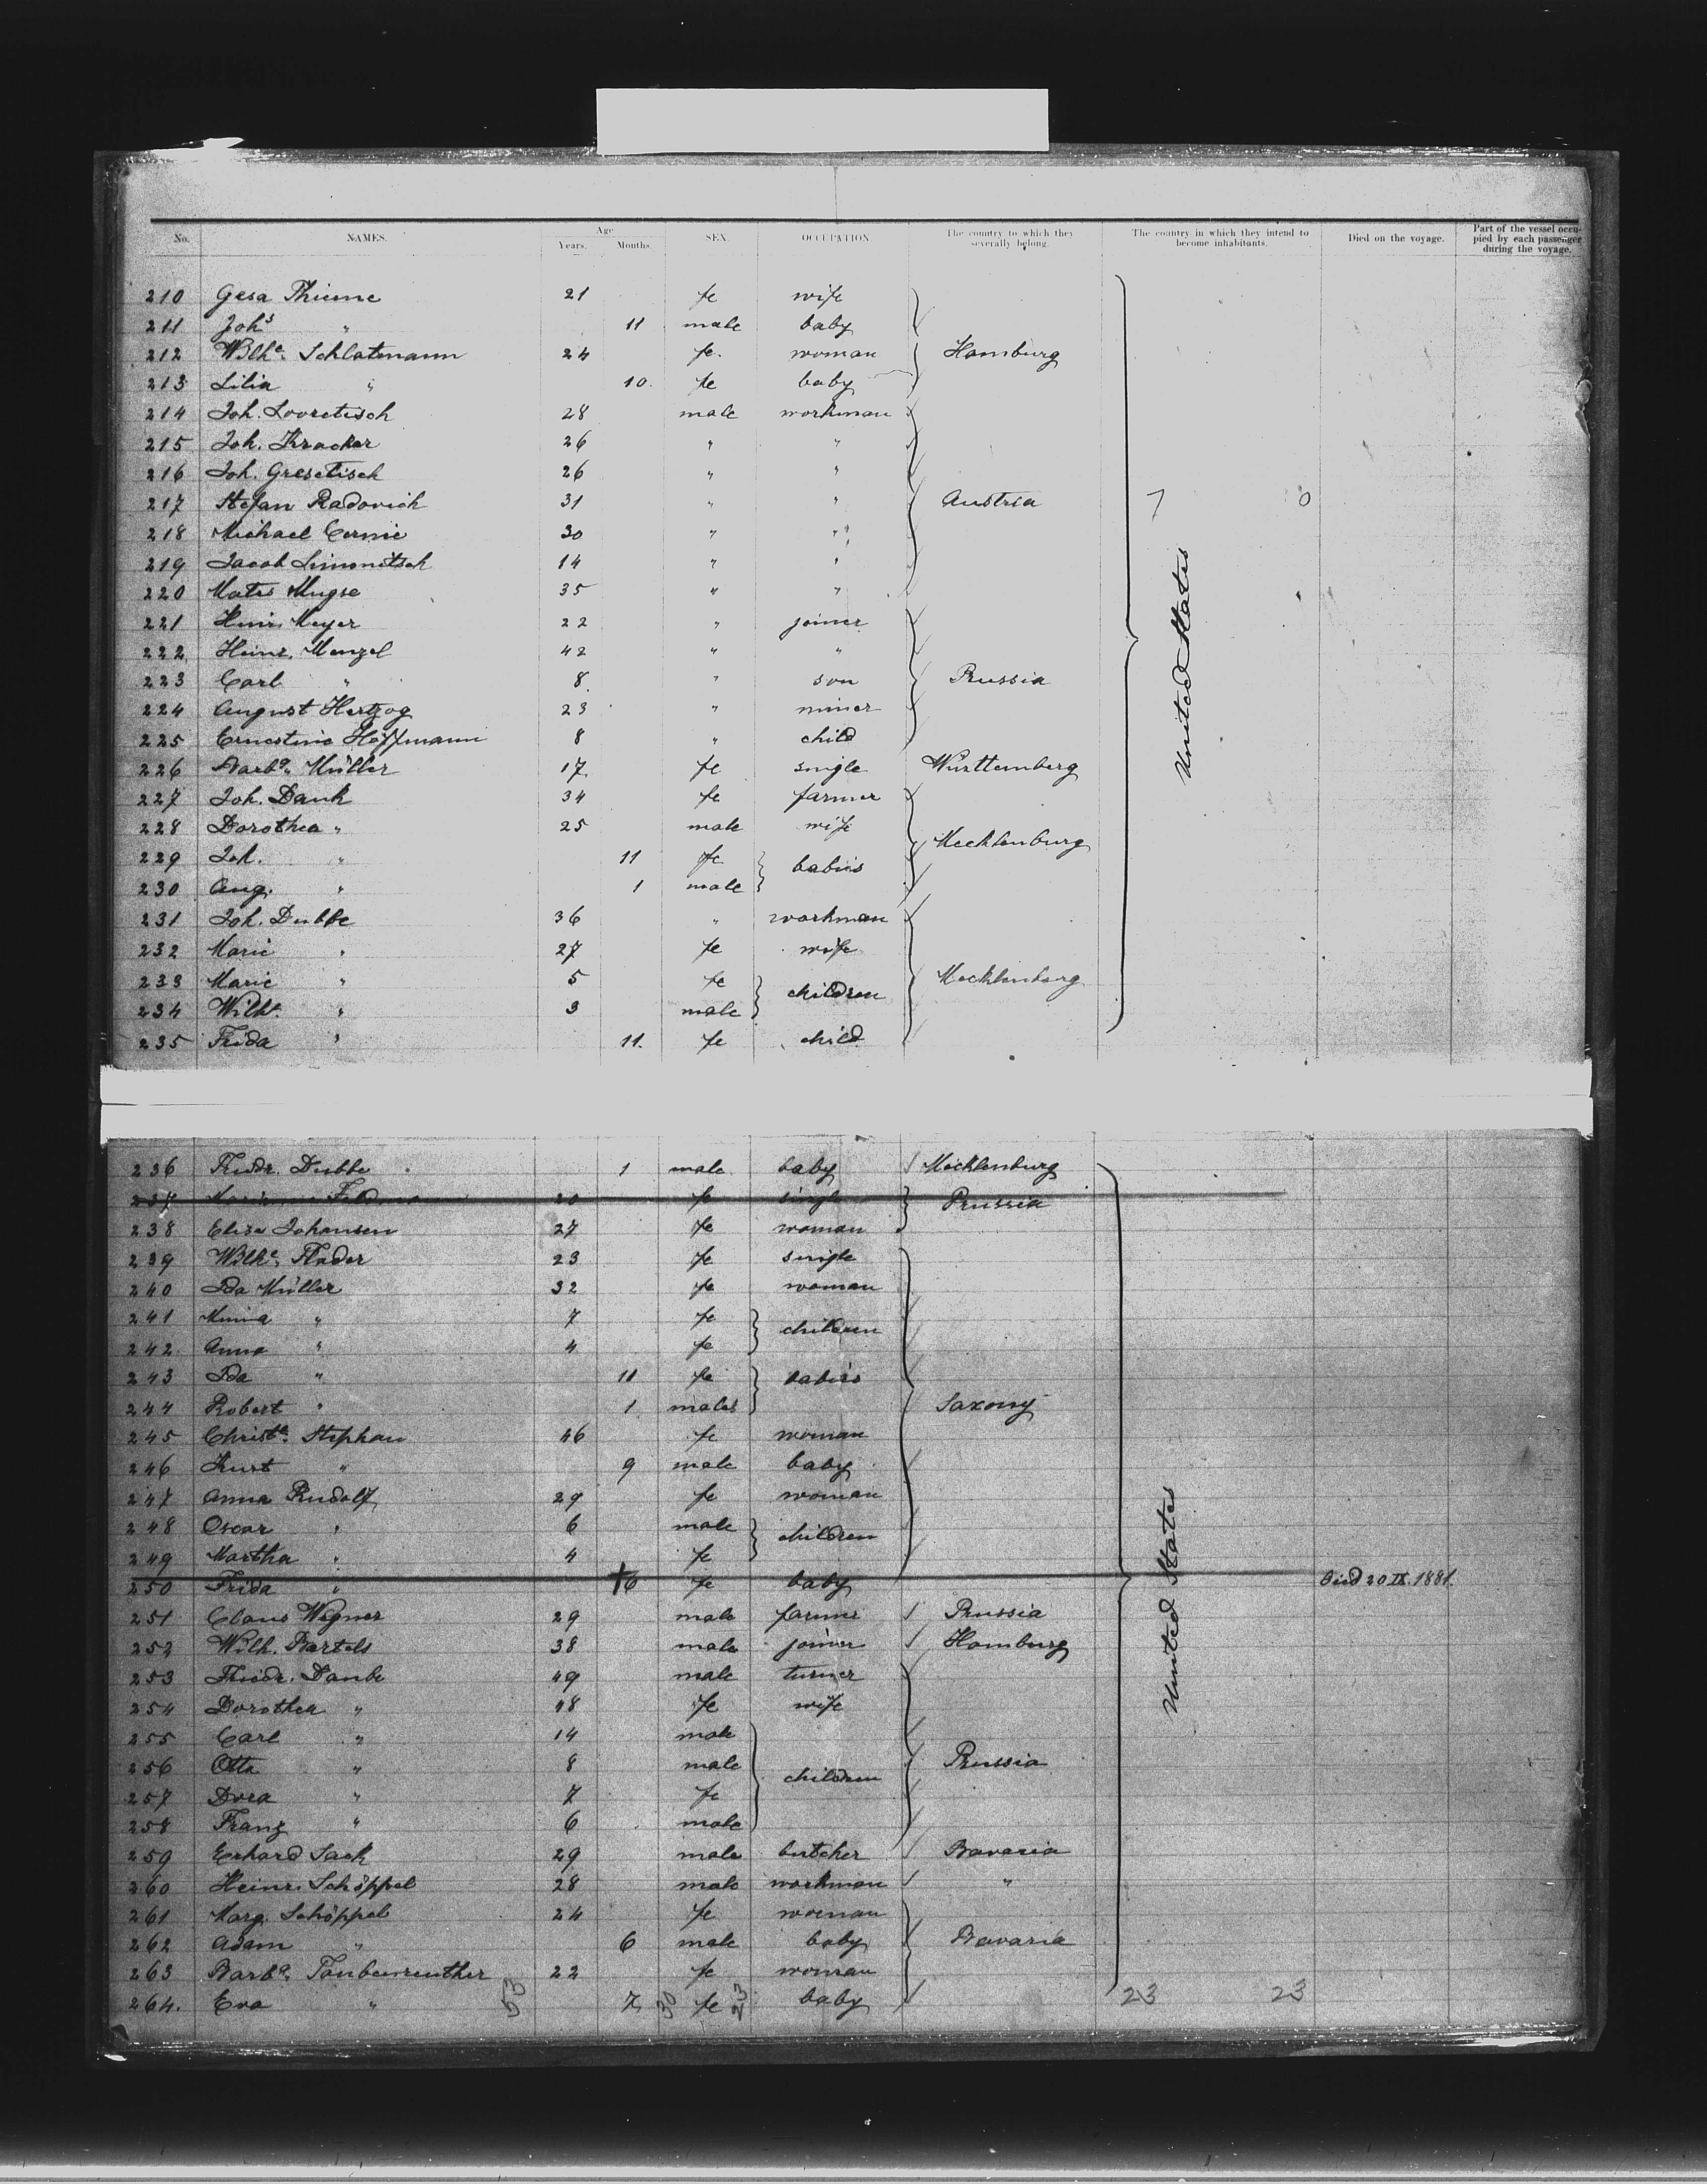 No. NAMES. Age Years. Months. SEX. OCCUPATION The country to which they severally belong. The country in which they intend to become inhabitants. Died on the voyage. Part of the vessel occupied by each passenger during the voyage.
210 Gesa Thieme 21 fe wife
211 Johs " 11 male baby
212 Wilhe. Schlatmann 24 fe. woman Hamburg
213 Lilia " 10. fe baby
214 Joh. Lovretisch 28 male workman
215 Joh. Kracker 26 " "
216 Joh. Gresetisch 26 " "
217 Stefan Radovich 31 " " Austria 7 0
218 Michael Cernic 30 " "
219 Jacob Simonitsch 14 " "
220 Mates Mugse 35 " "
221 Heinr. Meyer 22 " joiner
222 Heinr. Menzel 42 " "
223 Carl " 8. " son Prussia
224 August Hertzog 23 " miner
225 Ernestine Hoffmann 8 " child
226 Barba. Müller 17. fe single Württemberg
227 Joh. Dank 34 fe farmer
228 Dorothea " 25 male wife
229 Joh. " 11 fe babies Mecklenburg
230 Aug. " 1 male
231 Joh. Dubbe 36 " workman
232 Marie " 27 fe wife
233 Marie " 5 fe children Mecklenburg
234 Wilh. " 3 male
235 Frida " 11. fe child
United States
236 Friedr. Dubbe 1 male baby Mecklenburg
237 20 fe single Prussia
238 Elise Johansen 27 fe woman
239 Wilhe. Flader 23 fe single
240 Ida Müller 32 fe woman
241 Minna " 7 fe children
242 Anna " 4 fe
243 Ida " 11 fe babies
244 Robert " 1 males Saxony
245 Christe. Stephan 46 fe woman
246 Kurt " 9 male baby
247 Anna Rudolf 29 fe woman
248 Oscar " 6 male children
249 Martha " 4 fe
250 Frida " †6 fe baby died 20 IX. 1881.
251 Claus Wegner 29 male farmer Prussia
252 Wilh. Bartels 38 male joiner Hamburg
253 Friedr. Daube 49 male turner
254 Dorothea " 48 fe wife
255 Carl " 14 male
256 Otto " 8 male children Prussia
257 Dora " 7 fe
258 Franz " 6 male
259 Erhard Sack 29 male butcher Bavaria
260 Heinr. Schöppel 28 male workman "
261 Marg. Schöppel 24 fe woman
262 Adam " 6 male baby Bavaria
263 Barba. Taubenreuther 22 fe woman
264. Eva " 53 7. 30 fe 23 baby 23 23
United States